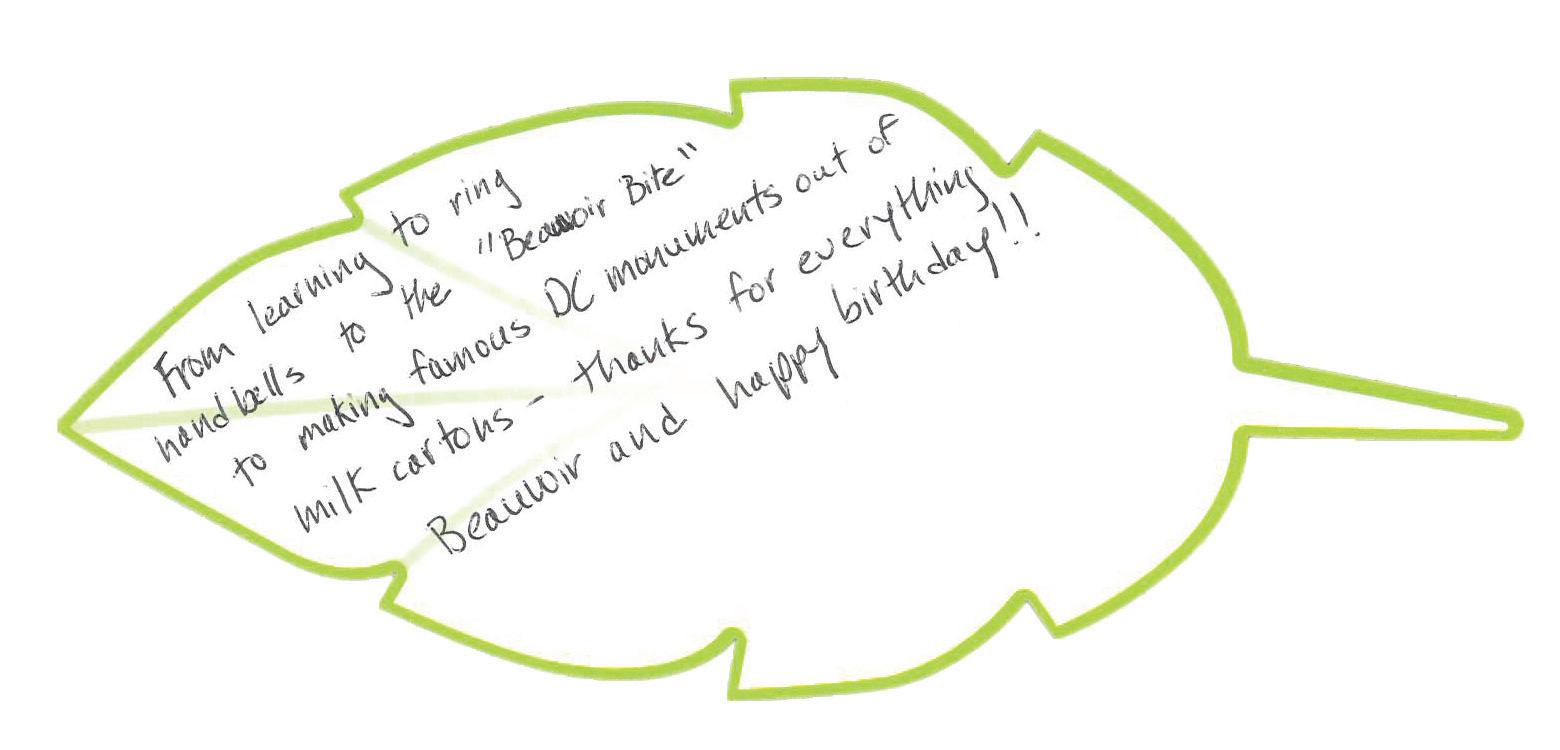 From learning to ring
handbells to the "Beauvoir Bite"
to making famous DC monuments out of
milk cartons - thanks for everything
Beauvoir and happy birthday!!